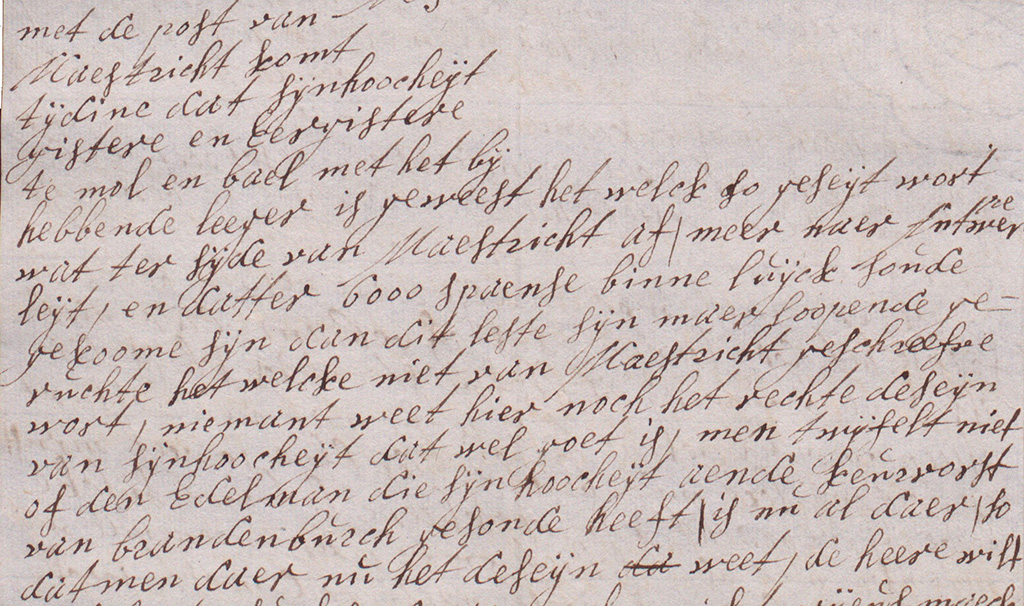 met de post van
Maestricht komt
tijdinc dat sijnhoocheijt
gistere en eergistere
te mol en bael met het bij
hebbende leeger is geweest het welck so geseijt wort
wat ter sijde van Maestricht af / meer naer Antwer
leijt, en datter 6000 spaense binne luijck soude
gekoome sijn dan dit leste sijn maer loopende ge-
ruchte het welcke niet van Maestricht geschreefve
wort, niemant weet hier noch het rechte deseijn
van sijnhoocheijt dat wel goet is, men twijfelt niet
of den Edelman die sijn hoocheijt aende keurvorst
van brandenburch gesonde heeft / is nu al daer / so
datmen daer nu het deseijn da weet, de heere wilt